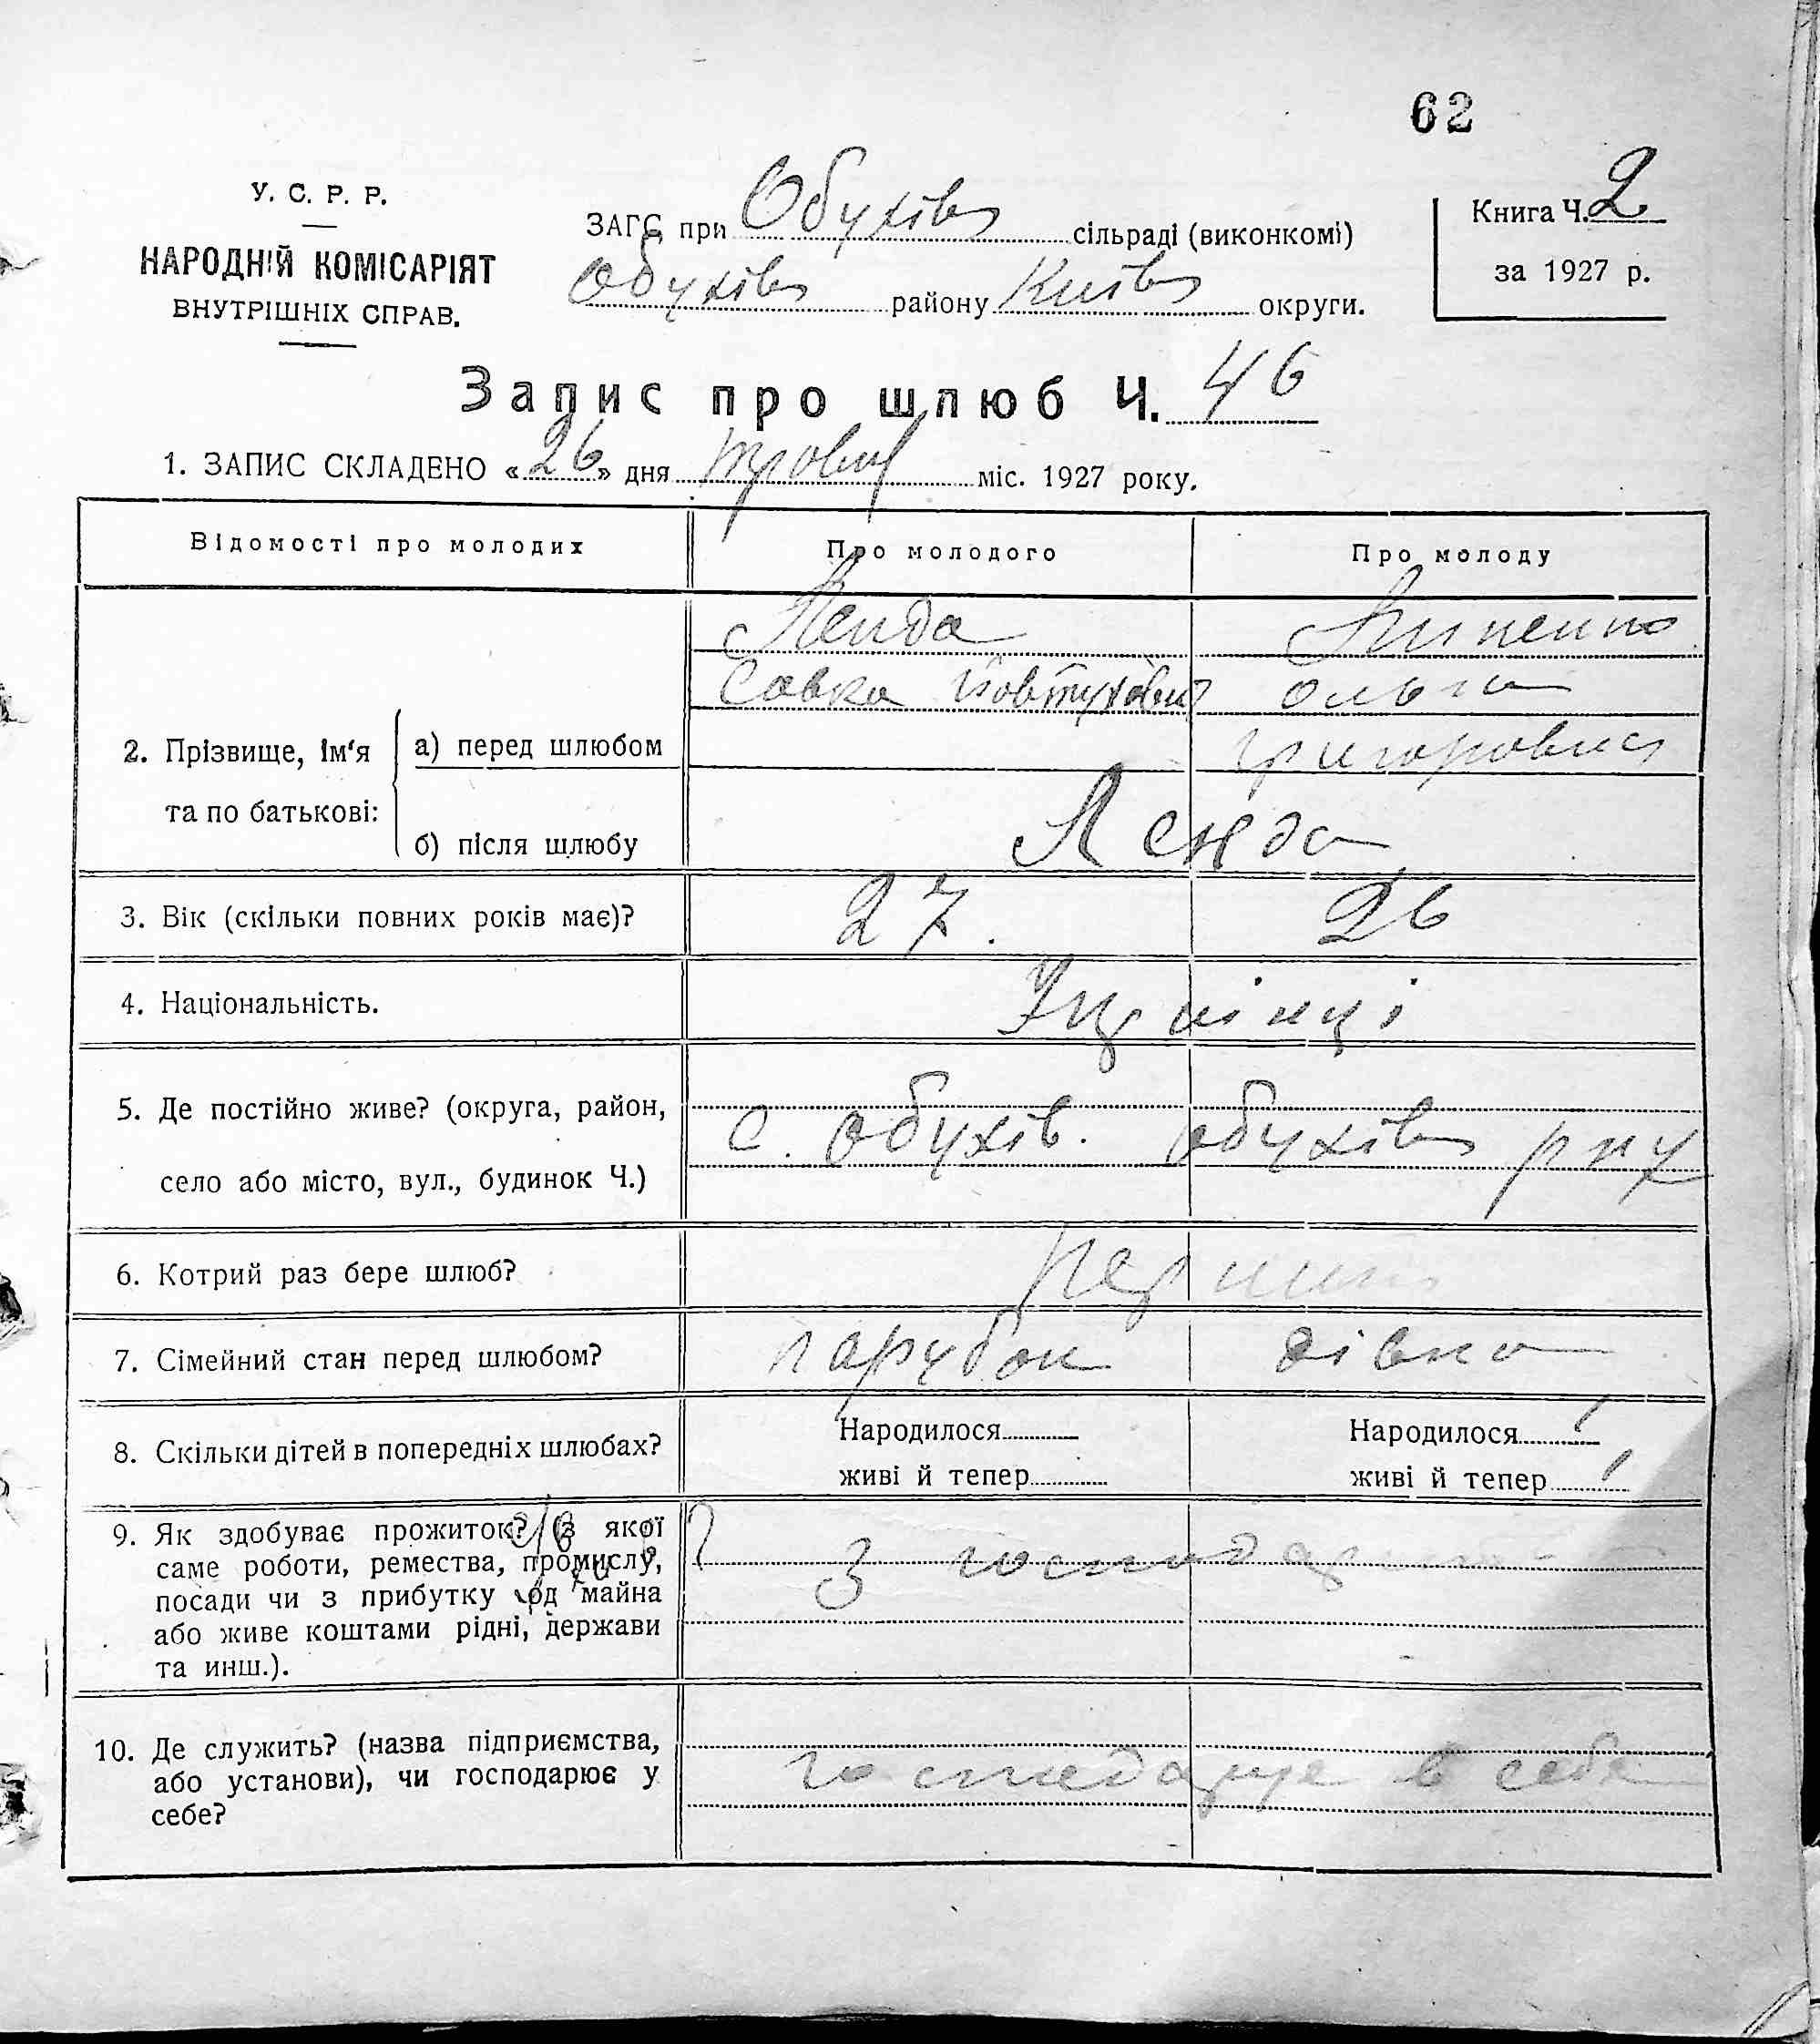 62
У. С. Р. Р.
НАРОДНІЙ КОМІСАРІЯТ
ВНУТРІШНІХ СПРАВ.
ЗАГС при Обухівс сільраді (виконкомі)
Обухівс району Київс округи.
Книга Ч. 2
за 1927 р.
Запис про шлюб Ч. 46
1. ЗАПИС СКЛАДЕНО «26» дня травня міс. 1927 року.
Відомості про молодих Про молодого Про молоду
2. Прізвище, ім'я та по батькові:
а) перед шлюбом
Ленда
Савка Йовтухович
Ольга
Григоровна
б) після шлюбу
Ленда
3. Вік (скільки повних років має)? 27. 26
4. Національність. Українці
5. Де постійно живе? (округа, район,
село або місто, вул., будинок Ч.)
с. Обухів. Обухівс р-ну
6. Котрий раз бере шлюб? перший
7. Сімейний стан перед шлюбом? парубок дівка
8. Скільки дітей в попередніх шлюбах?
Народилося
живі й тепер
Народилося
живі й тепер
9. Як здобуває прожиток? (з якої
саме роботи, ремества, промислу,
посади чи з прибутку од майна
або живе коштами рідні, держави
та инш.).
З господарства
10. Де служить? (назва підприємства,
або установи), чи господарює у
себе?
господарює в себе